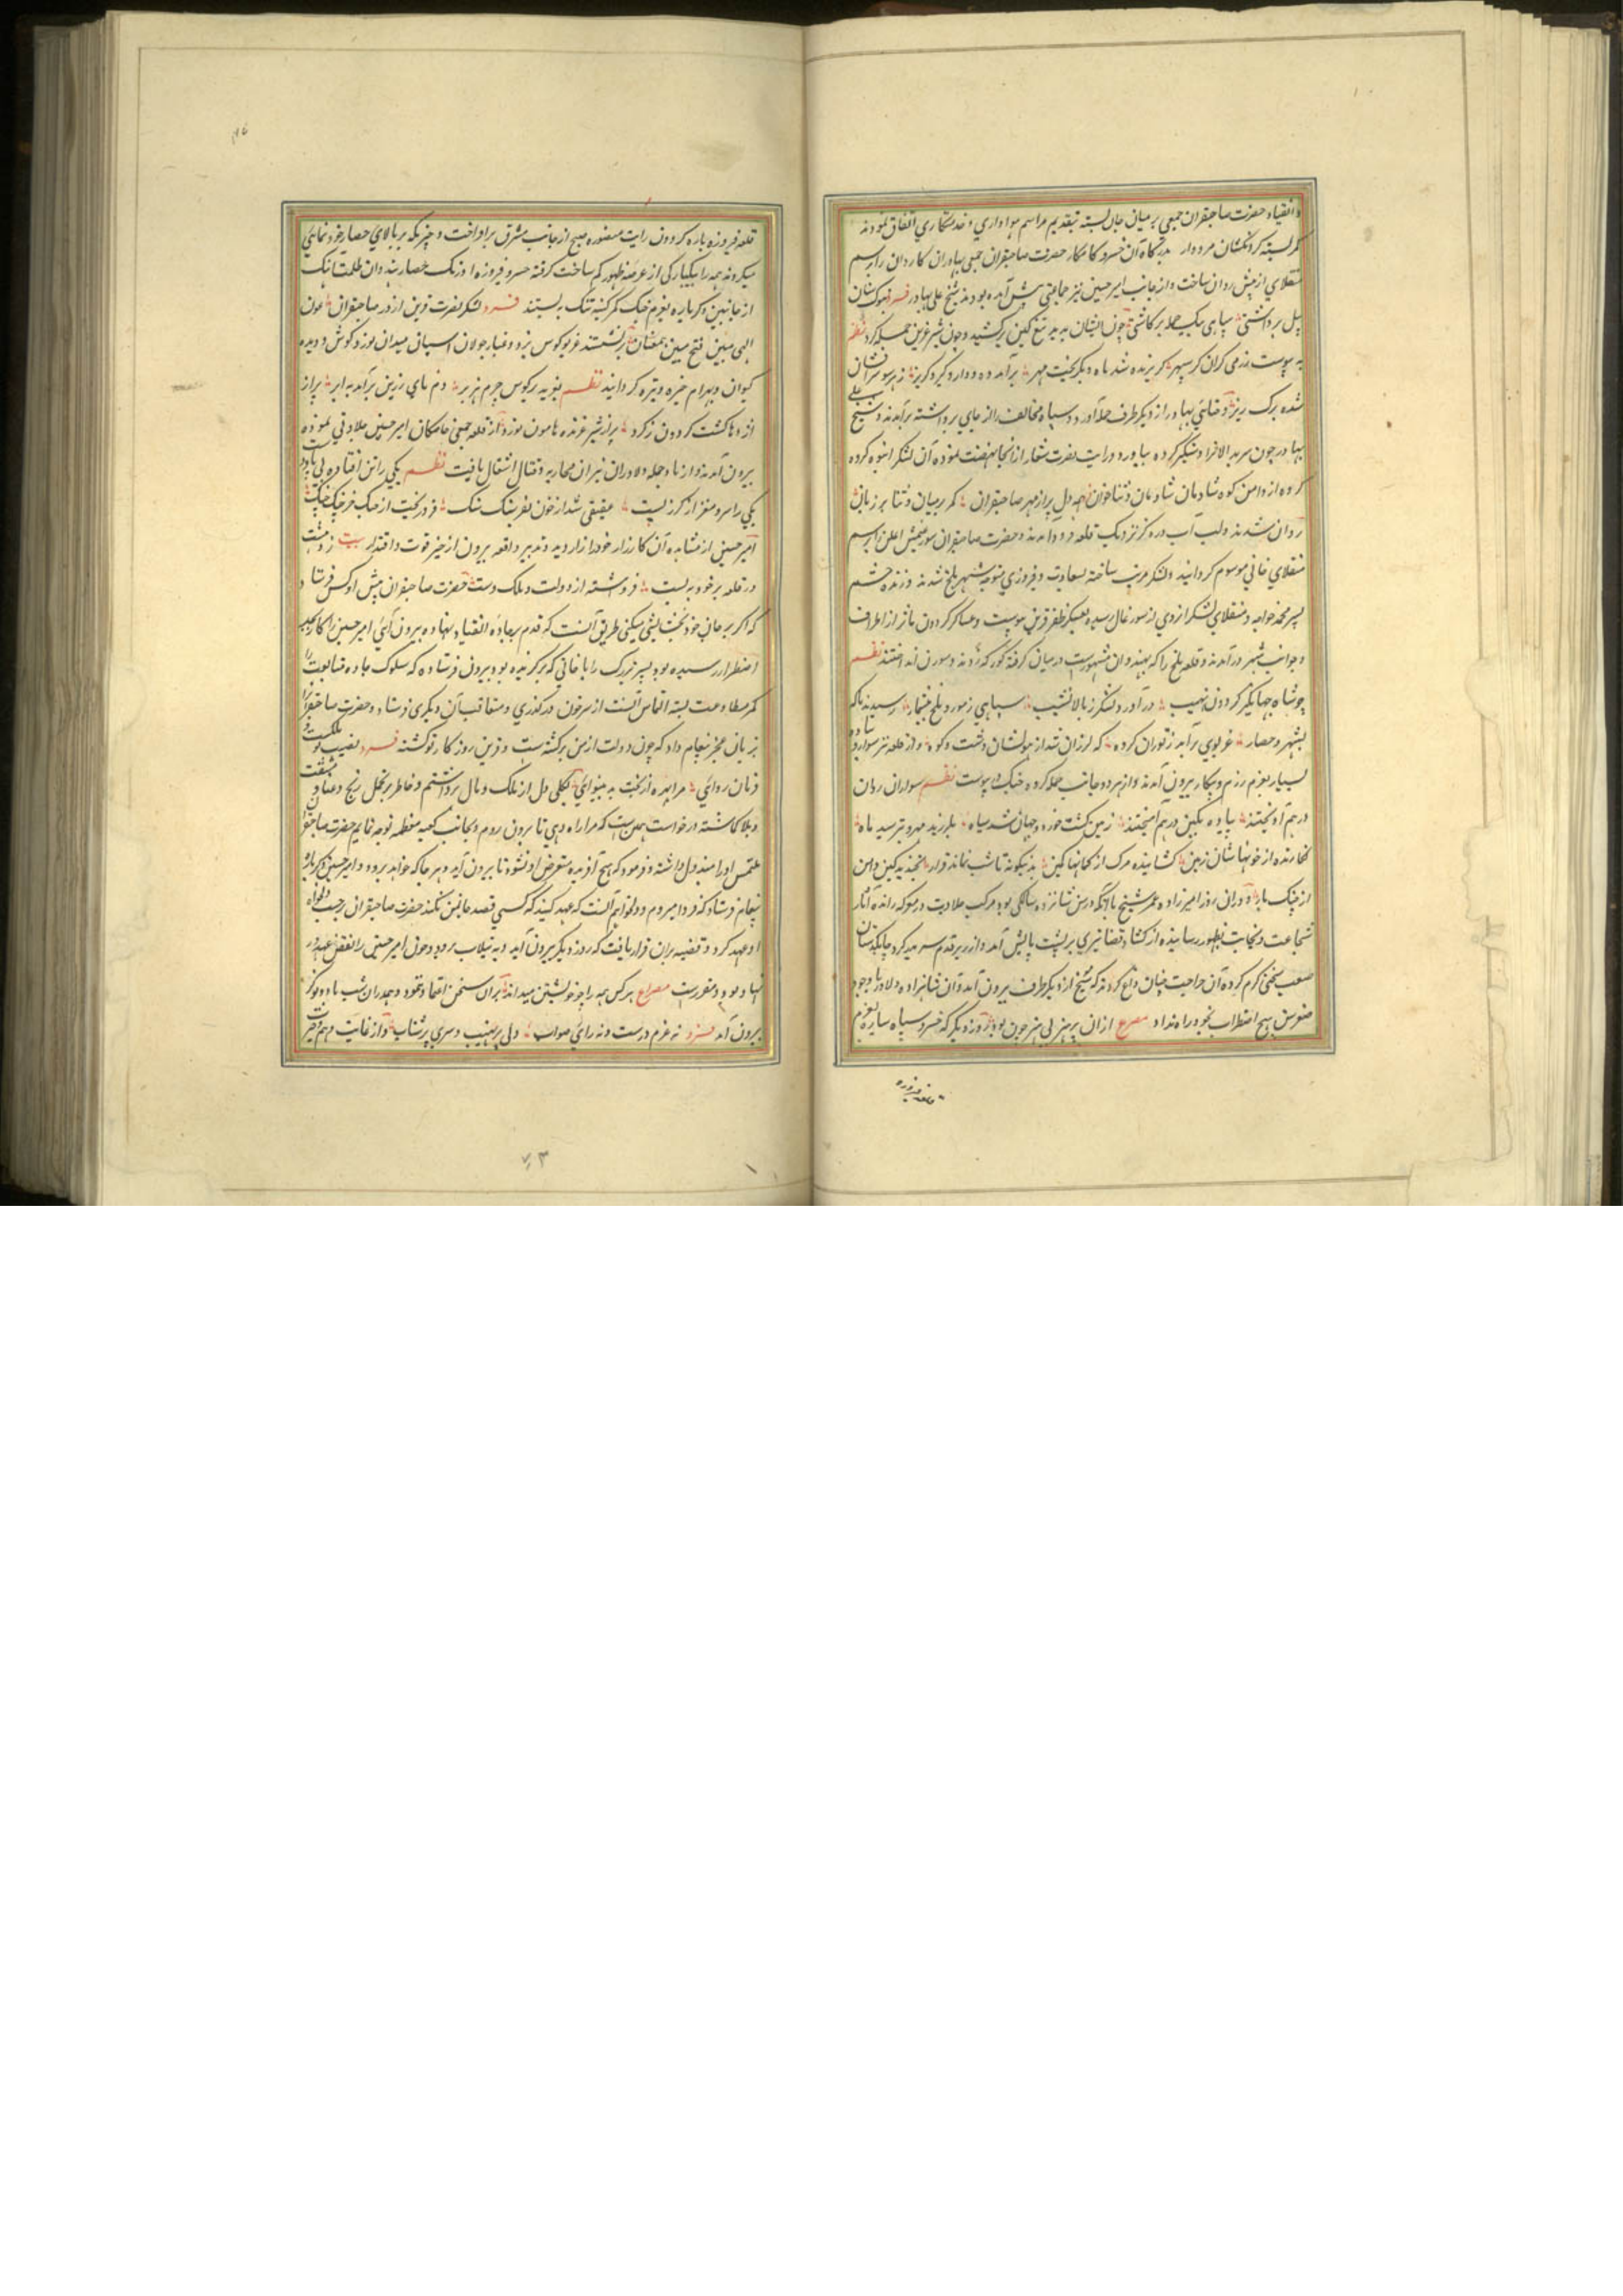 و انقیاد حضرت صاحبقران جمعی بر میان جان بسته بتقدیم مراسم هواداری و خدمتکاری اتفاق نمودند
کمر بسته گردنکشان مردوار بدرگاه آن خسرو کامکار حضرت صاحبقران جمعی بهادران کاردان را برسم
منقلای از پیش روان ساخت و از جانب امیر حسین نیز جماعتی پیش آمده بودند شیخ علی بهادر فرد
پل برداشتی سپاهی بیک حمله برکاشتی چون ایشان بدید تیغ کین برکشید و چون شیر غرین حمله کرد نظم
به پیوست رزمی کران کز سپهر گریزنده شد ماه دیگر بخت مهر برآمد ده و دار و گیر و گریز ز هر سو
شده برگ ریز و ختای بهادر از دیگر طرف حمله آورد و سپاه مخالف را از جای برداشته برآمدند و شیخ علی
بهادر چون سربدال را دستگیر کرده بیاورد و رایت نصرت شعار از آنجا نهضت نموده آن لشکر انبوه کرده
گروه از دامن کوه شادمان شادمان و ثناخوان همه دل پر از مهر صاحبقران کمر بر میان و ثنا بر زبان
روان شدند و لب آب دره کز نزدیک قلعه فرود آمدند و حضرت صاحبقران سیورغتمش اغلن را برسم
منقلای خانی موسوم گردانید و لشکر مرتب ساخته بسعادت و فیروزی متوجه شهر بلخ شدند و زنده حشم
پسر محمد خواجه و منقلای لشکر اردوی از سورغال رسیده بعسکر ظفر قرین پیوست و عساکر گردون مآثر از اطراف
و جوانب شهر درآمدند و قلعه بلخ را که بهندوان مشهورست در میان گرفته کورکه زدند و سورن انداختند نظم
چو شاه جهانگیر گردون نهیب درآورد لشکر ز بالا نشیب سپاهی ز مور و ملخ بیشمار رسیدند ناگه
بشهر و حصار غریوی برآمد ز توران گروه که لرزان شد از هولشان دشت و کوه و از قلعه نیز سوار و پیاده
بسیار بعزم رزم و پیکار بیرون آمدند و از هر دو جانب حمله کرده جنگ در پیوست نظم سواران روان
در هم آویختند پیاده بکین در هم آمیختند زمین گشت خورد و جهان شد سیاه بلرزید مهر و بترسید ماه
نگارنده از خونهاشان زمین گشاینده مرگ از کمانها کمین بدینگونه تا شب نماند قرار نجنبید کین و امن
از جنگ باز و در آن روز امیرزاده عمر شیخ با آنکه در سن شانزده سالگی بود مرکب جلادت در معرکه رانده آثار
شجاعت و نجابت بظهور رسانیده از گشاد قضا تیری بر پشت پایش آمد و از زیر قدم سر بدر کرد چابکدستان
صعب سیخی گرم کرده آن جراحت چنان داغ کردند که سیخ از دیگر طرف بیرون آمد و آن شاهزاده دلاور با وجود
صغر سن هیچ اضطراب بخود راه نداد مصرع از آن پر هنر بی هنر چون بود روز دیگر که خسرو سیاره بعزم
قلعه فیروزه
قلعه فیروزه باره گردون رایت منصوره صبح از جانب مشرق برافراخت و چیزیکه بر بالای حصار خودنمائی
میکردند همه را بیکبارگی از عرصه ظهور کم ساخت گرفته خسرو فیروزه اورنگ حصار هندوان ظلمت آهنگ
از جانبین دگرباره بعزم جنگ کمر کینه تنگ بستند فرد لشکر نصرت قرین از در صاحبقران عون
الهی مبین فتح مبین همعنان برنشستند غریو کوس نبرد و غبار جولان اسبان میدان نورد گوش و دیده
کیوان و بهرام خیره و تیره گردانید نظم بغرید بر کوس چرم هژبر دم نای زرین برآمد به ابر پر از
اژدها گشت گردون ز گرد پر از شیر غرنده هامون نورد از قلعه جمعی جامگان امیر حسین جلادتی نموده
بیرون آمدند و از باد حمله دلاوران نیران محاربه و قتال اشتعال یافت نظم یکی را تن افتاده بی پا و دست
یکی را سر و مغز از گرز پست عقیقی شد از خون بفرسنگ سنگ فرو ریخت از چنگ خرچنگ چنگ
امیر حسین از مشاهده آن کارزار خود را زار دید و تدبیر واقعه بیرون از حیز قوت و اقتدار بیت ز دهشت
در قلعه بر خود ببست فروشسته از دولت و ملک دست حضرت صاحبقران پیش او کس فرستاد
که اگر بر جان خود بخشایشی میکنی طریق آنست که قدم بجاده انقیاد نهاده بیرون آئی امیر حسین را کار بحد
اضطرار رسیده بود پسر بزرگ را با خانی که برگزیده بود بیرون فرستاده که سلوک جاده متابعت را
کمر مطاوعت بسته التماس آنست از سر خون درگذری و متعاقب آن دیگری فرستاد و حضرت صاحبقران را
بزبان عجز پیغام داد که چون دولت از من برگشته است و قرین روزگار تو گشته فرد نصیب تو مملکت و
فرمان روائی مرا بهره از بخت بد بینوائی بکلی دل از ملک و مال برداشتم و خاطر بر تحمل رنج و عنا و مشقت
و بلا گماشته درخواست همین است که مرا راه دهی تا برون روم و بجانب کعبه معظمه توجه نمایم حضرت صاحبقران
ملتمس او را مبذول داشته و فرمود که هیچ آفریده متعرض او نشود تا بیرون آید و هر جا که خواهد برود و امیر حسین دگرباره
پیغام فرستاد که فردا میروم و دلخواهم آنست که عهد کنید که کسی قصد جان من نکند حضرت صاحبقران بر حسب دلخواه
او عهد کرد و قضیه بر آن قرار یافت که روز دیگر بیرون آید و به تیلاب برود و چون امیر حسین را نقض عهد در
نهاد بود و مقررست مصراع هر کس همه را چو خویشتن میداند بر آن سخن اعتماد ننمود و همدران شب با دو نوکر
بیرون آمد فرد نه عزم درست و نه رای صواب دلی پر نهیب و سری پر شتاب و از غایت وهم و حیرت